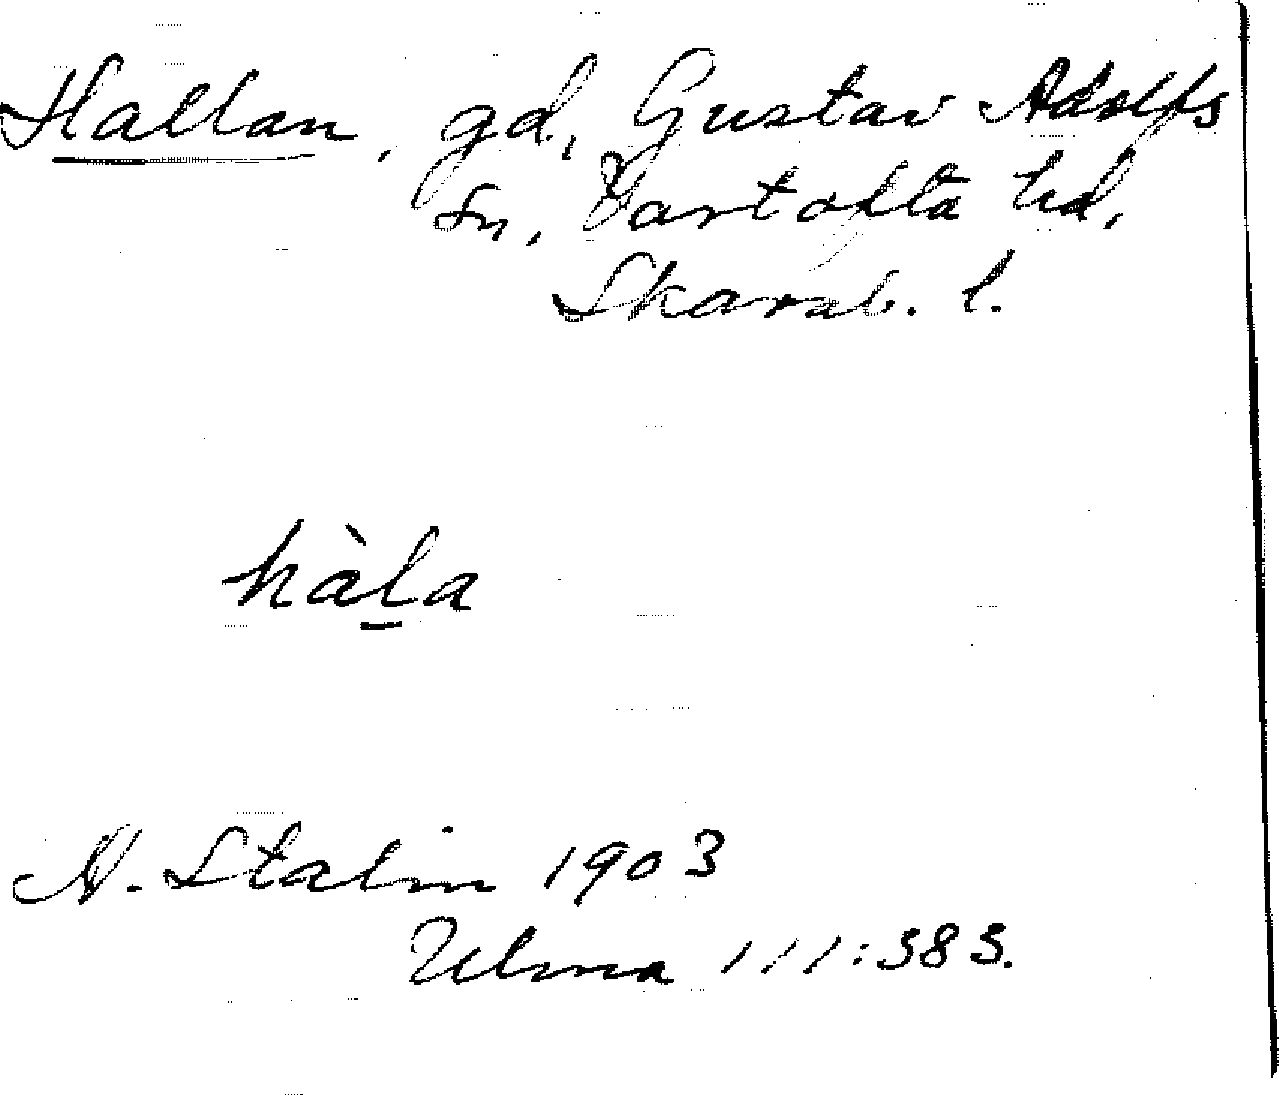 Hallan, gd, Gustav Adolfs
sn, Vartofta hd,
Skarab. l.
hàla
N. Stalin 1903
Ulma 111:383.